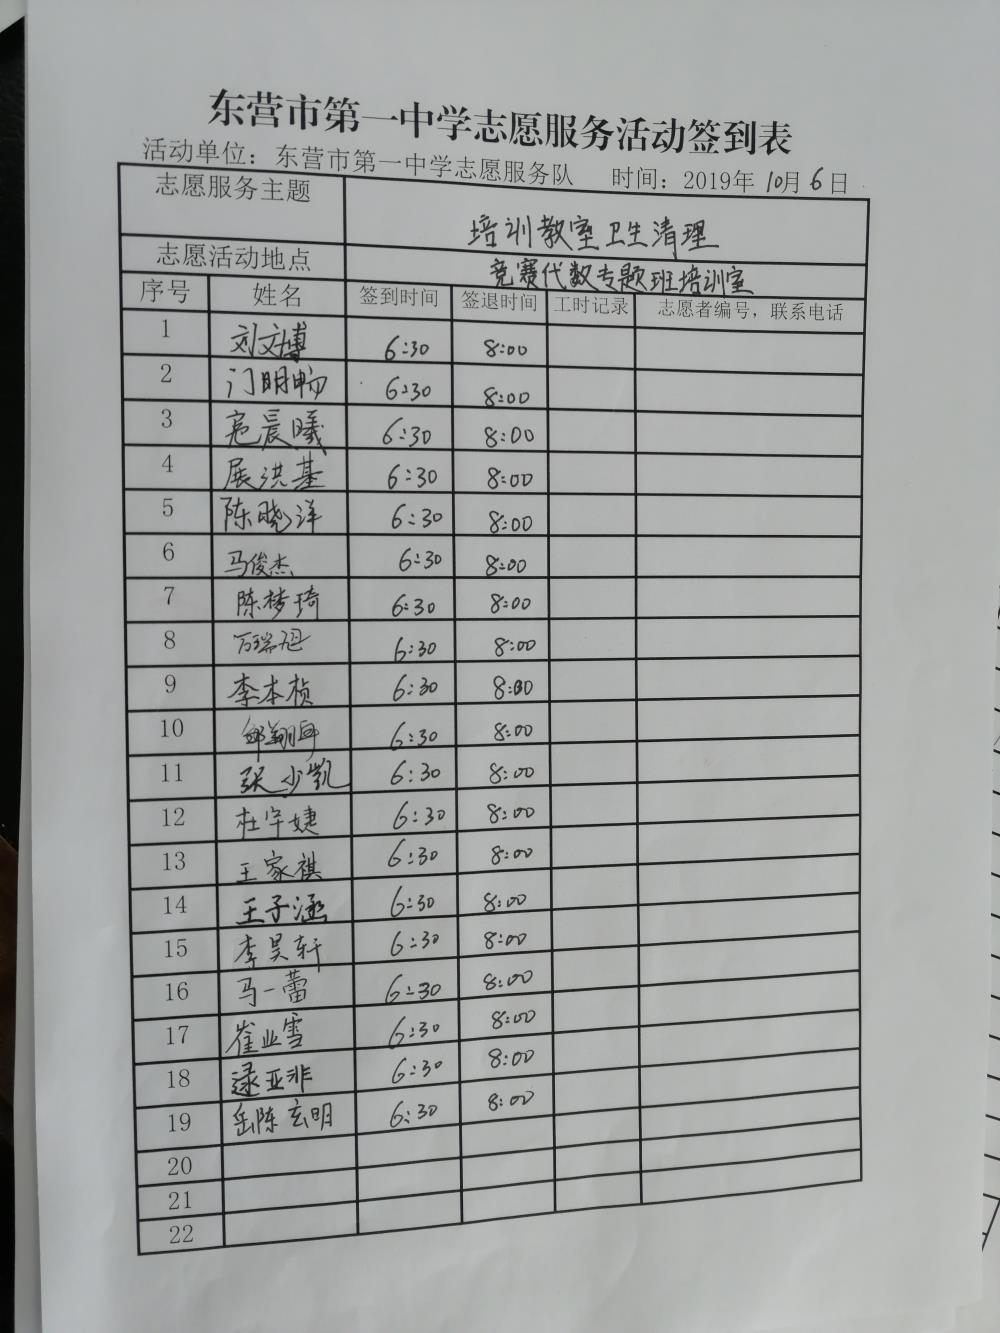 东营市第一中学志愿服务活动签到表
活动单位：东营市第一中学志愿服务队 时间：2019年10月6日
志愿服务主题 培训教室卫生清理
志愿活动地点 竞赛代数专题班培训室
序号 姓名 签到时间 签退时间 工时记录 志愿者编号，联系电话
1 刘文博 6:30 8:00
2 门明畅 6:30 8:00
3 晨曦 6:30 8:00
4 展洪基 6:30 8:00
5 陈晓洋 6:30 8:00
6 马俊杰 6:30 8:00
7 陈梦琦 6:30 8:00
8 万瑞 6:30 8:00
9 李本桢 6:30 8:00
10 6:30 8:00
11 张少凯 6:30 8:00
12 杜宇婕 6:30 8:00
13 王家祺 6:30 8:00
14 王子涵 6:30 8:00
15 李昊轩 6:30 8:00
16 马一蕾 6:30 8:00
17 崔业雪 6:30 8:00
18 逯亚非 6:30 8:00
19 岳陈玄明 6:30 8:00
20
21
22